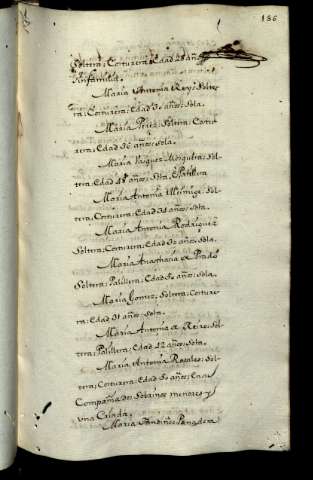 186
Soltera; Costurera, Edad 28 años
Maria Antonia Rey; Solte-
ra; Costurera; Edad 30 años; Sola.
Maria Perez; Soltera; Costu-
rera; Edad 36 años; Sola.
Maria Vazquez Mosquera; Sol-
tera; Edad 48 años; Sola,
Maria Antonia Sol-
tera; Costurera; Edad 34 años; Sola.
Maria Antonia Rodriguez
Soltera; Costurera; Edad 30 años; Sola.
Maria Anastasia de Prado
Soltera; Palillera; Edad 50 años; Sola.
Maria Gomez; Soltera; Costure-
ra; Edad 31 años; Sola.
Maria Antonia de Sol-
tera; Palillera; Edad 22 años; Sola.
Maria Antonia Rosales; Sol-
tera; Costurera; Edad 50 años; En su
Compañia dos Sobrinos menores y
una Criada.
Maria Fandiño; Panadera